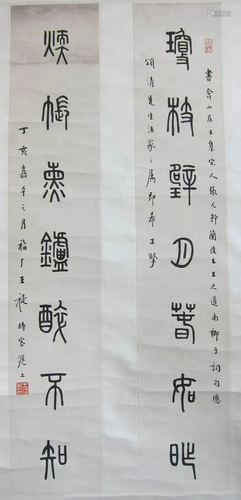 瓊枝璧月春如昨
書山居士集宋人張元幹蘭陵王王之道南鄉子詞句應
頌清先生法家之屬即希正
煗帳熏鑪不知
丁亥嘉平之月福厂王禔時客滬上